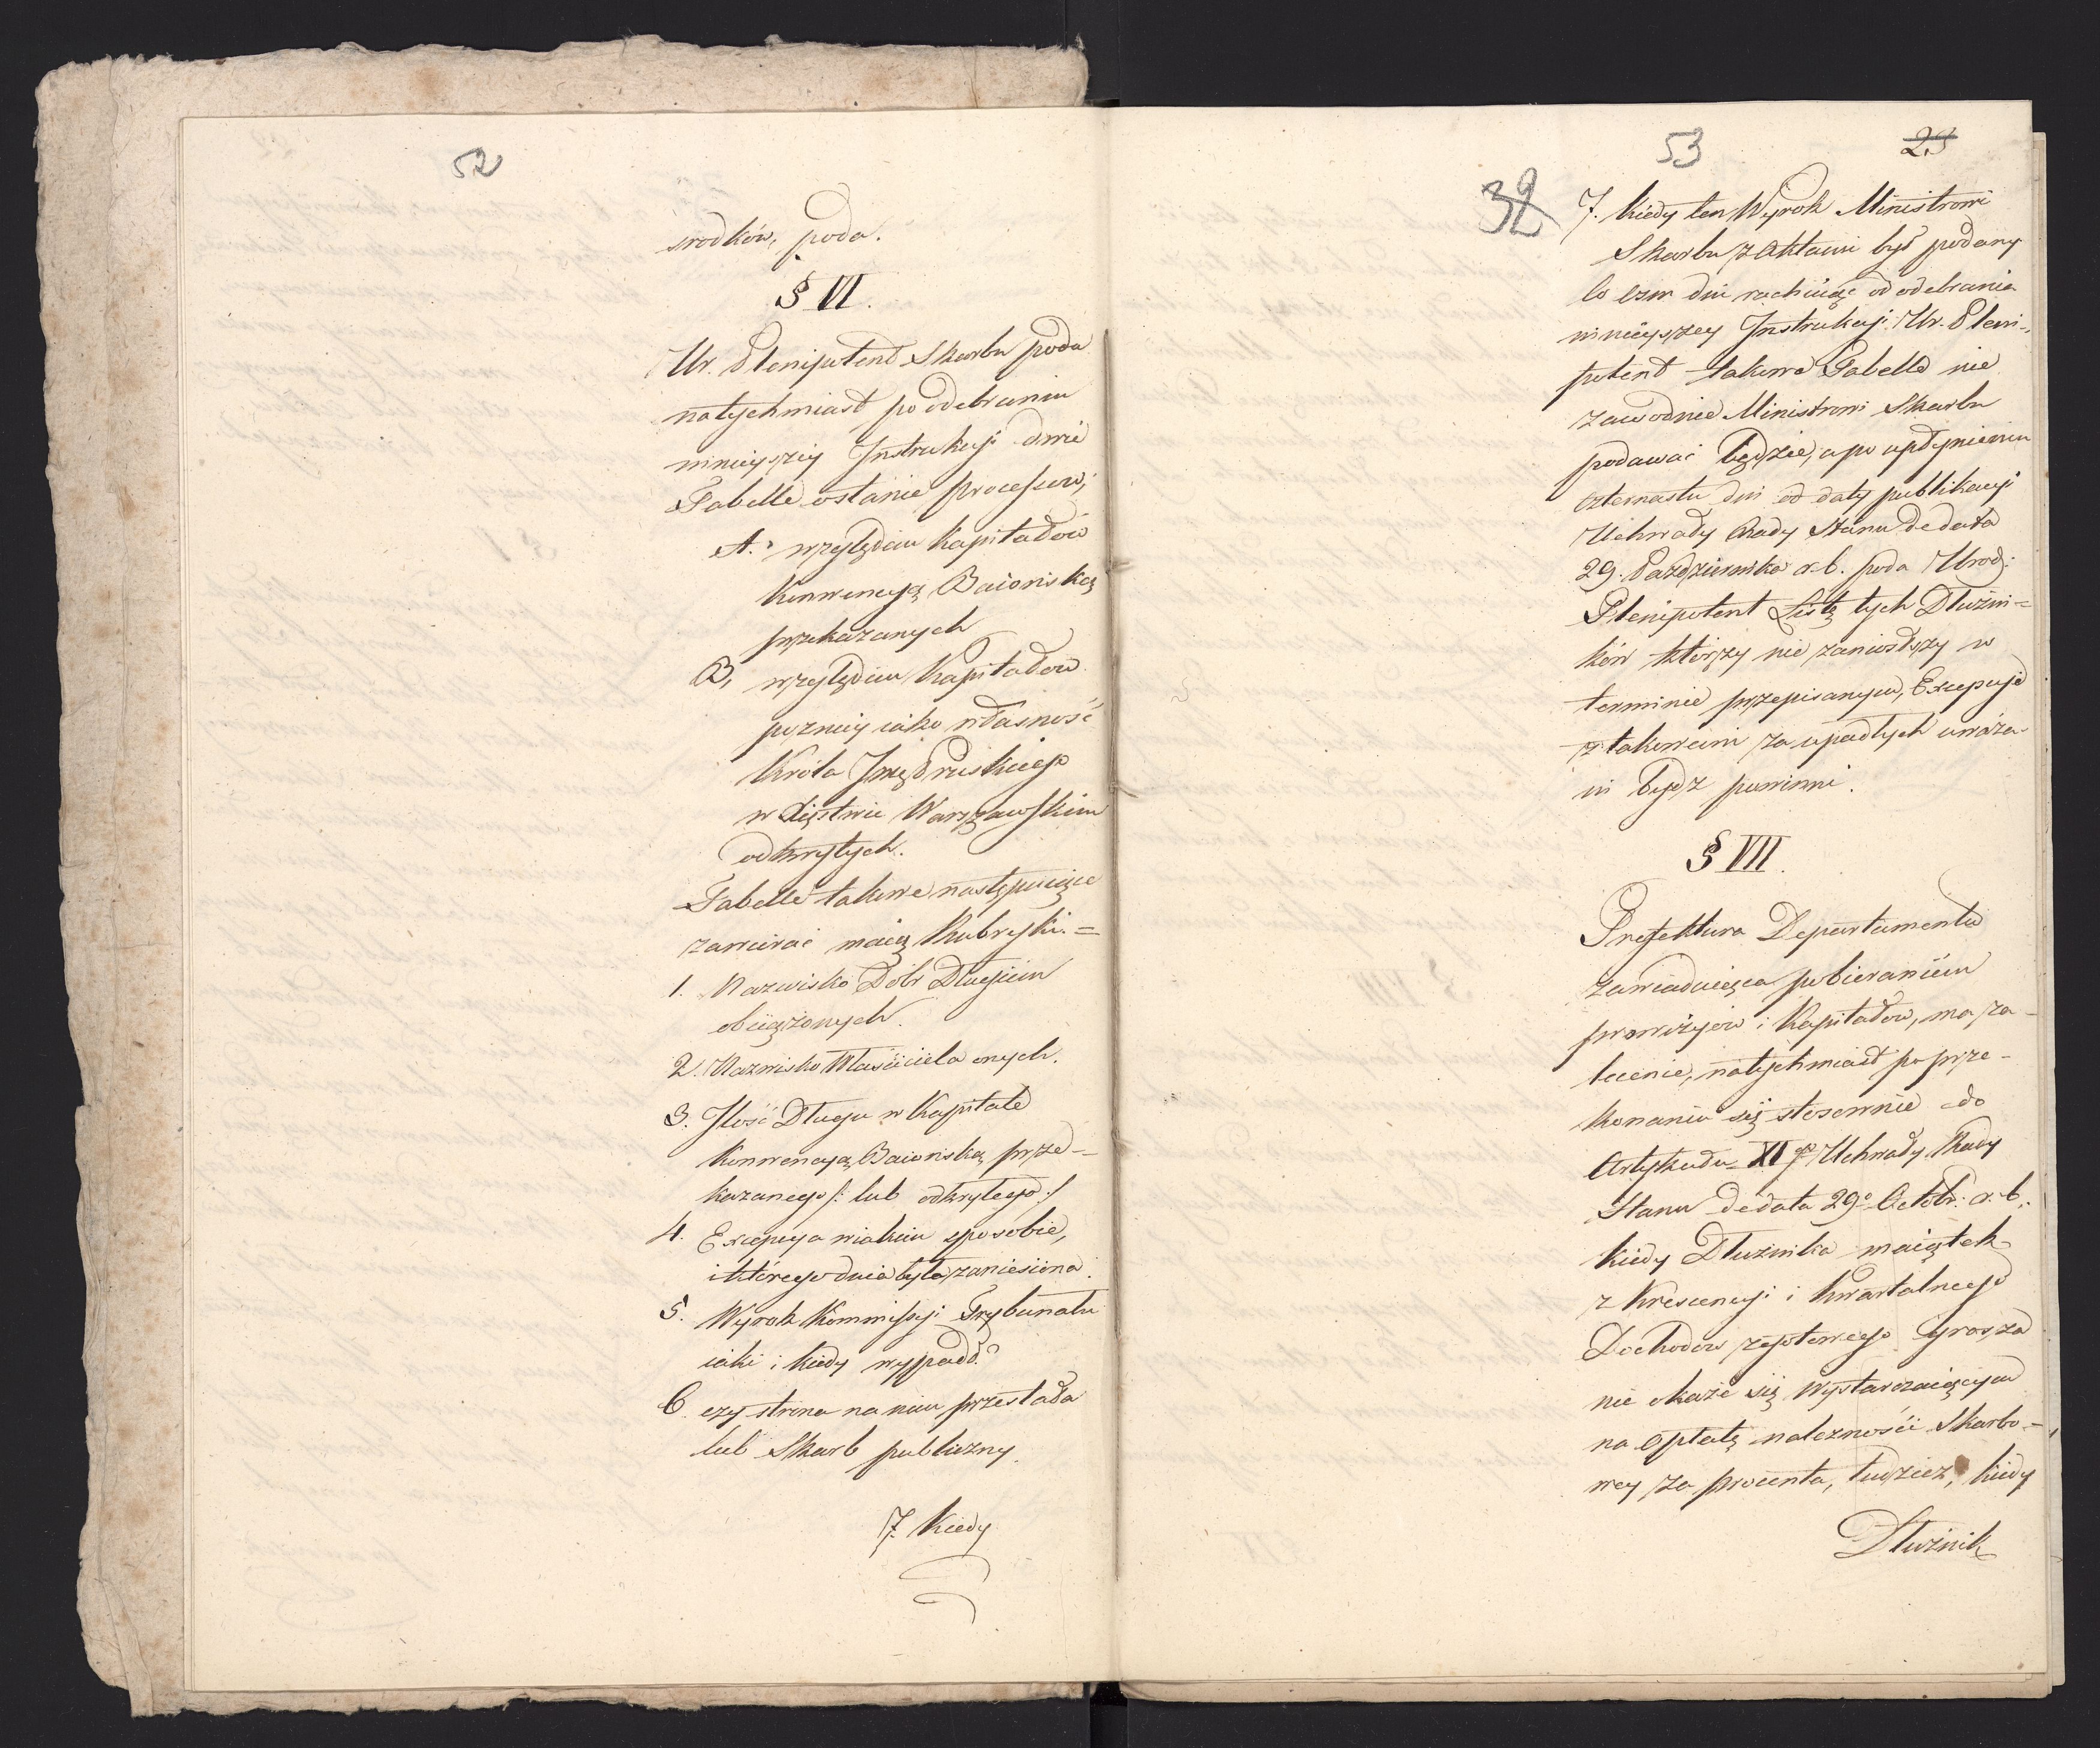 52
srodków, poda.
§ VI.
Ur. Plenipotent Skarbu poda
natychmiast po odebraniu
ninieyszey Instrukcyi dwie
Tabelle o stanie processow,
A. względem Kapitałów
Konwencyą Baiońską
przekazanych
B, względem Kapitałow
pozniey iako własność
Króla Jmci Pruskiego
w Xięstwie Warszawskim
odkrytych.
Tabelle takowe następuiące
zawierać maią Rubryki. =
1. Nazwisko Dóbr Długiem
obciążonych.
2. Nazwisko Właściciela onych.
3. Ilość Długu w Kapitale
Konwencyą Baiońską prze-
kazanego /: lub odkrytego :/
4. Excepcya w iakim sposobie,
i którego dnia była zaniesiona.
5. Wyrok Kommissyi Trybunału
iaki i kiedy wypadł?
6. czy strona na nim przestała
lub Skarb publiczny.
7. Kiedy
53
29
32
7. Kiedy ten Wyrok Ministrowi
Skarbu z Aktami był podany
Co dni rachuiąc od odebrania
ninieyszey Instrukcyi Ur. Pleni-
potent takowe Tabelle nie
zawodnie Ministrowi Skarbu
podawać będzie, a po upłynieniu
czternastu dni od daty publikacyi
Uchwały Rady Stanu de data
29. Października r. b. poda Urodz:
Plenipotent Listę tych Dłużni=
ków którzy nie zaniosłszy w
terminie przepisanym, Excepcyi
z takowemi za upadłych uważa
ni bydź powinni.
§ VII.
Prefektura Departamentu
zawiaduiąca pobieraniem
prowizyów i Kapitałów, ma za-
lecenie, natychmiast po prze-
konaniu się stosownie do
Artykułu XIgo Uchwały Rady
Stanu de data 29o Octobr: r. b.
kiedy Dłużnika maiątek
z Krescencyi i kwartalnego
Dochodów gotowego grosza
nie okaże się wystarczaiącym
na opłatę należności Skarbo-
wey za procenta, tudzież, kiedy
Dłużnik